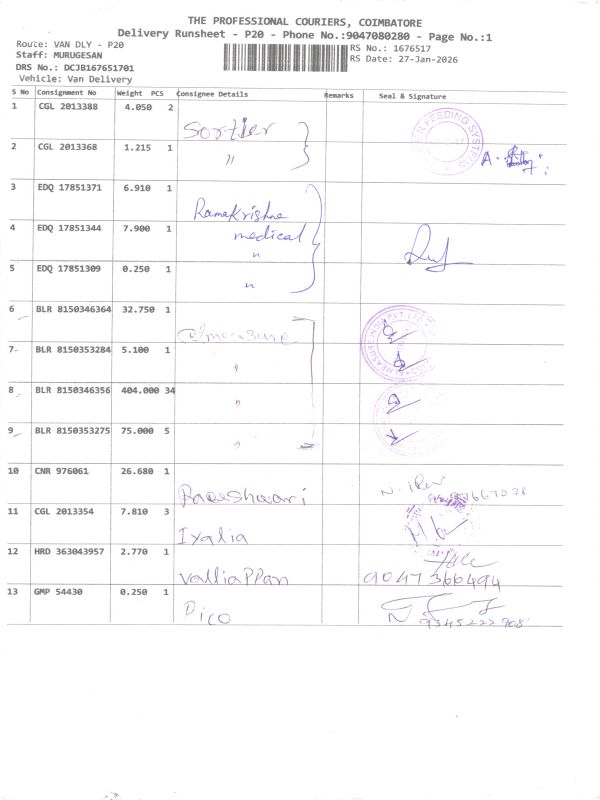 THE PROFESSIONAL COURIERS, COIMBATORE
Delivery Runsheet - P20 - Phone No.:9047080280 - Page No.:1
Route: VAN DLY - P20
Staff: MURUGESAN
DRS No.: DCJB167651701
Vehicle: Van Delivery
RS No.: 1676517
RS Date: 27-Jan-2026
S No Consignment No Weight PCS Consignee Details Remarks Seal & Signature
1 CGL 2013388 4.050 2 Sortler
2 CGL 2013368 1.215 1 "
FEEDING SYSTEMS
3 EDQ 17851371 6.910 1 Ramakrishna
4 EDQ 17851344 7.900 1 medical
"
5 EDQ 17851309 0.250 1 "
6 BLR 8150346364 32.750 1
7 BLR 8150353284 5.100 1 "
8 BLR 8150346356 404.000 34 "
9 BLR 8150353275 75.000 5 "
10 CNR 976061 26.680 1
11 CGL 2013354 7.810 3 Iyalia
12 HRD 363043957 2.770 1 ValliaPPan 9047366494
13 GMP 54430 0.250 1 Pico 9345222908